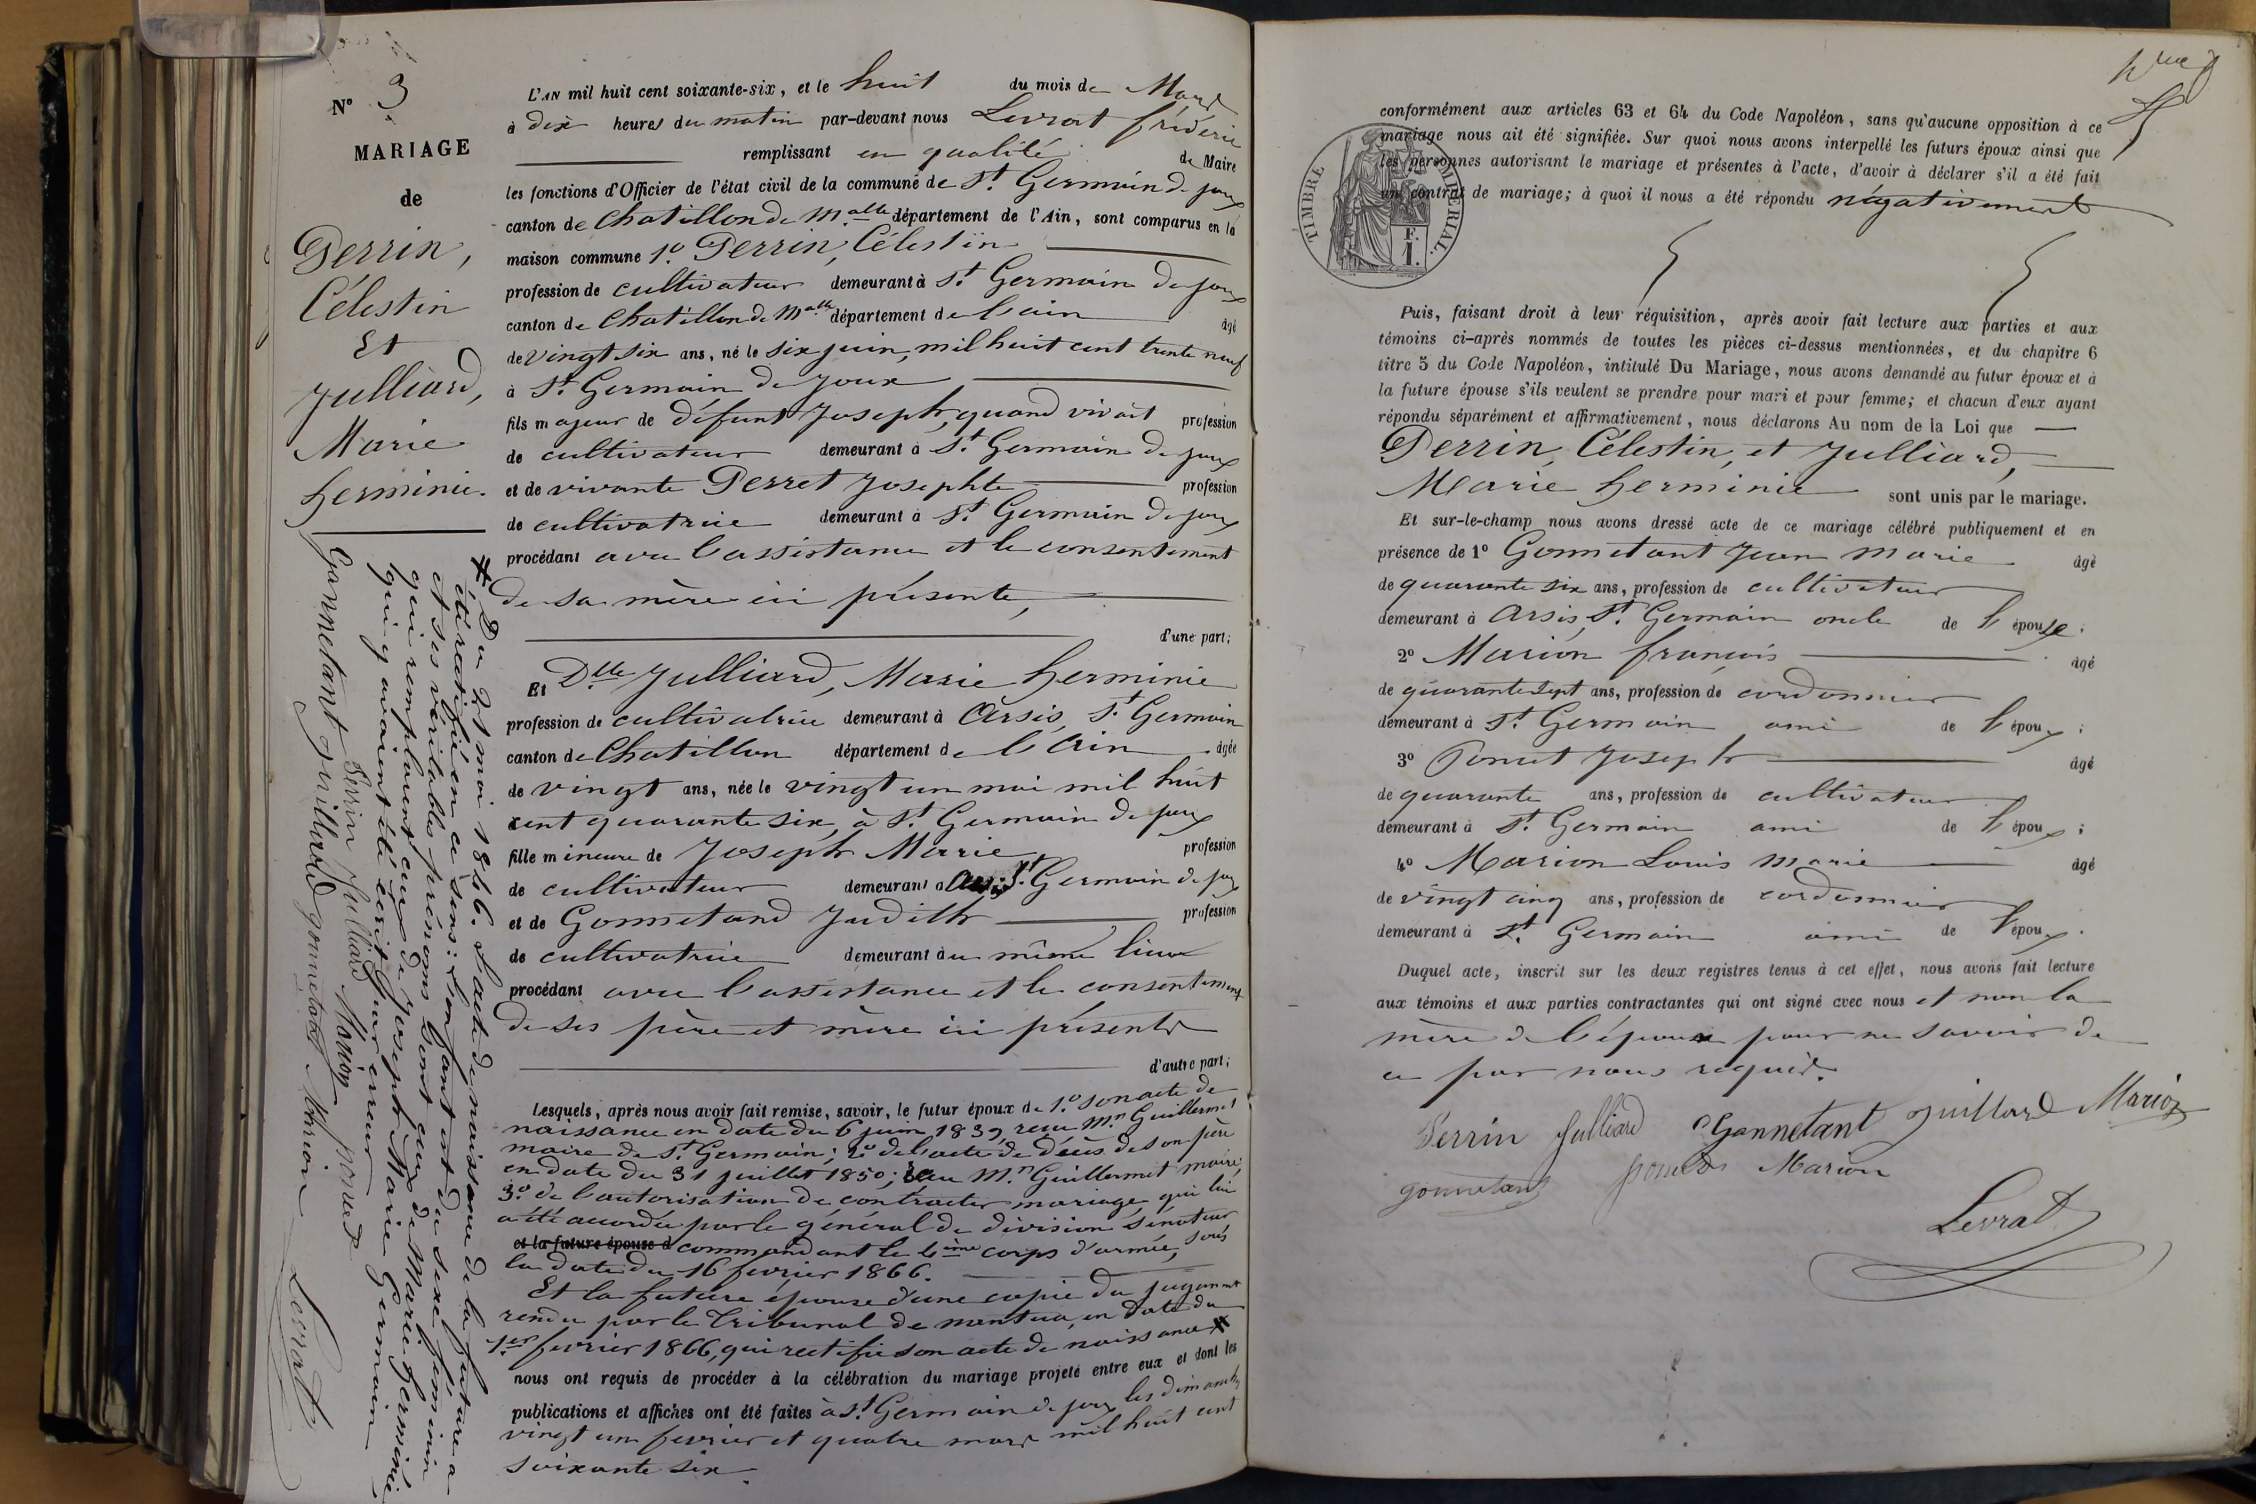 N° 3
MARIAGE
de
Perrin,
Célestin
Et
Julliard,
Marie
herminie.
L'AN mil huit cent soixante-six, et le huit du mois de Mars
à dix heures du matin par-devant nous Levrat fréderic
remplissant en qualité de Maire
les fonctions d'Officier de l'état civil de la commune de St. Germain de joux
canton de Chatillon de Malle département de l'Ain, sont comparus en la
maison commune 1° Perrin, Célestin
profession de cultivateur demeurant à St. Germain de joux
canton de Chatillon de Malle département de l'ain âgé
de vingt six ans, né le six juin, mil huit cent trente neuf
à St. Germain de Joux
fils majeur de défunt Joseph, quand vivait profession
de cultivateur demeurant à St. Germain de joux
et de vivante Perret Josephte profession
de cultivatrice demeurant à St. Germain de joux
procédant avec l'assistance et le consentement
de sa mère ici présente,
d'une part;
Et Dlle Julliard, Marie herminie
profession de cultivatrice demeurant à Arsis, St. Germain
canton de Chatillon département de l'Ain âgée
de vingt ans, née le vingt un mai mil huit
cent quarante six, à St. Germain de joux
fille mineure de Joseph Marie, profession
de cultivateur demeurant à Arsis St. Germain de joux
et de Gonnetand Judith profession
de cultivatrice demeurant à au même lieux
procédant avec l'assistance et le consentement
de ses père et mère ici présents
d'autre part;
Lesquels, après nous avoir fait remise, savoir, le futur époux de 1.° son acte de
naissance en date du 6 juin 1839, reçu Mr. Guillermet
maire de St. Germain; 2.° de l'acte de décès de son père
en date du 31 juillet 1850; reçu Mr. Guillermet maire;
3.° de l'autorisation de contracter mariage, qui lui
a été accordée par le général de division sénateur
et la future épouse d commandant le 4ème corps d'armée, sous
la date du 16 fevrier 1866.
Et la future épouse d'une copie du jugement
rendu par le Tribunal de nantua, en date du
1.er fevrier 1866, qui rectifie son acte de naissance #
nous ont requis de procéder à la célébration du mariage projeté entre eux et dont les
publications et affiches ont été faites à St. Germain de joux les dimanches
vingt un fevrier et quatre mars mil huit cent
soixante six.
# Du 21 mai 1846. L'acte de naissance de la future a
été rectifié en ce sens: l'enfant est du sexe féminin
et ses véritables prénoms sont ceux de Marie herminie
qui remplacent ceux de Joseph Marie Germain
qui y avaient été écrit par erreur
Perrin Julliard Marion poncet
Gannetant juillard gonnetant Marion Levrat
conformément aux articles 63 et 64 du Code Napoléon, sans qu'aucune opposition à ce
mariage nous ait été signifiée. Sur quoi nous avons interpellé les futurs époux ainsi que
les personnes autorisant le mariage et présentes à l'acte, d'avoir à déclarer s'il a été fait
un contrat de mariage; à quoi il nous a été répondu négativement
TIMBRE IMPERIAL.
F.
1.
Puis, faisant droit à leur réquisition, après avoir fait lecture aux parties et aux
témoins ci-après nommés de toutes les pièces ci-dessus mentionnées, et du chapitre 6
titre 5 du Code Napoléon, intitulé Du Mariage, nous avons demandé au futur époux et à
la future épouse s'ils veulent se prendre pour mari et pour femme; et chacun d'eux ayant
répondu séparément et affirmativement, nous déclarons Au nom de la Loi que
Perrin, Célestin, et Julliard,
Marie herminie sont unis par le mariage.
Et sur-le-champ nous avons dressé acte de ce mariage célébré publiquement et en
présence de 1° Gonnetant Jean marie âgé
de quarante six ans, profession de cultivateur
demeurant à Arsis, St. Germain oncle de l'épouse;
2° Marion françois âgé
de quarante sept ans, profession de cordonnier
demeurant à St Germain ami de l'époux;
3° Poncet Joseph âgé
de quarante ans, profession de cultivateur
demeurant à St. Germain ami de l'époux;
4° Marion Louis marie âgé
de vingt cinq ans, profession de cordonnier
demeurant à St. Germain ami de l'époux.
Duquel acte, inscrit sur les deux registres tenus à cet effet, nous avons fait lecture
aux témoins et aux parties contractantes qui ont signé avec nous et non la
mère de l'époux pour ne savoir de
ce par nous requis.
Perrin Julliard Gannetant juillard Marion
gonnetant poncet Marion
Levrat